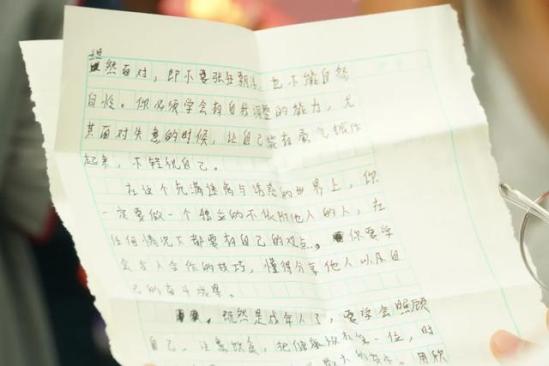 坦然面对，即不要张狂朝，也不能自然
自怜。你必须学会有自我调整的能力，尤
其面对失意的时候，让自己能有勇气振作
起来，不轻视自己。
在这个充满透离与诱惑的世界上，你
一定要做一个独立的不依附他人的人，在
任何情况下都要有自己的观点。你要学
会与人合作的技巧，懂得分享他人以及自
己的奋斗成果。
既然是成年人了，要学会照顾
自己。注意饮食，把健康放在第一位，